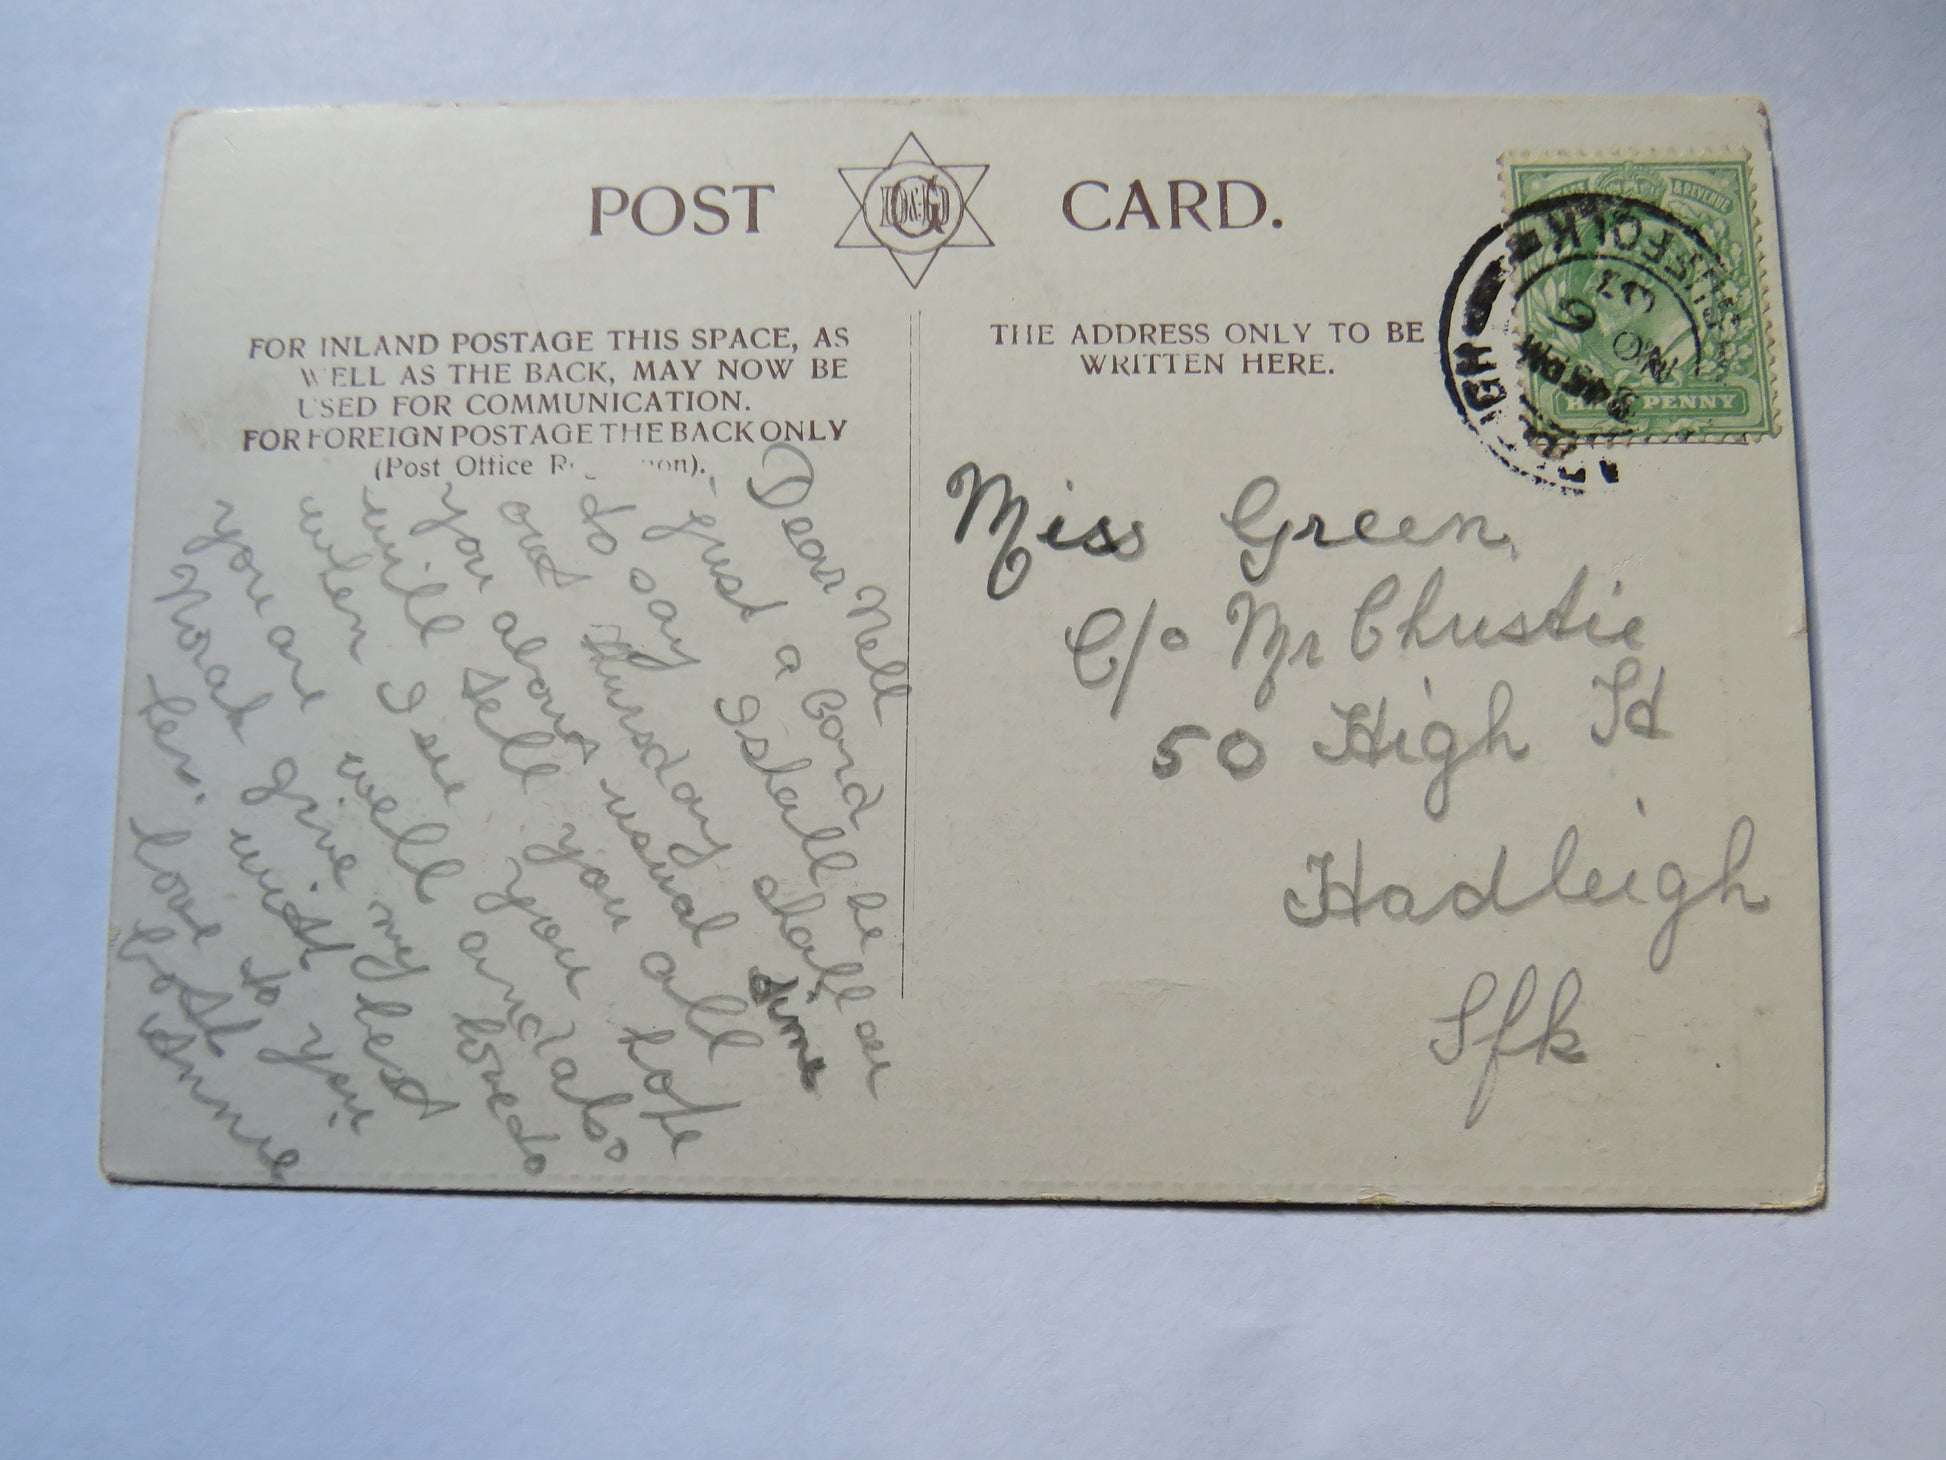 POST CARD.
FOR INLAND POSTAGE THIS SPACE, AS
WELL AS THE BACK, MAY NOW BE
USED FOR COMMUNICATION.
FOR FOREIGN POSTAGE THE BACK ONLY
(Post Office R on).
THE ADDRESS ONLY TO BE
WRITTEN HERE.
Dear Nell
just a Card
to say I shall be
out thursday shall see
you about usual time
will tell you all
when I see you hope
you are well and also
Norah give my love to
her. with best
love to you
both
Annie
Miss Green,
C/o Mr Christie
50 High St
Hadleigh
Sfk
HALF PENNY
SUFFOLK
NO 6